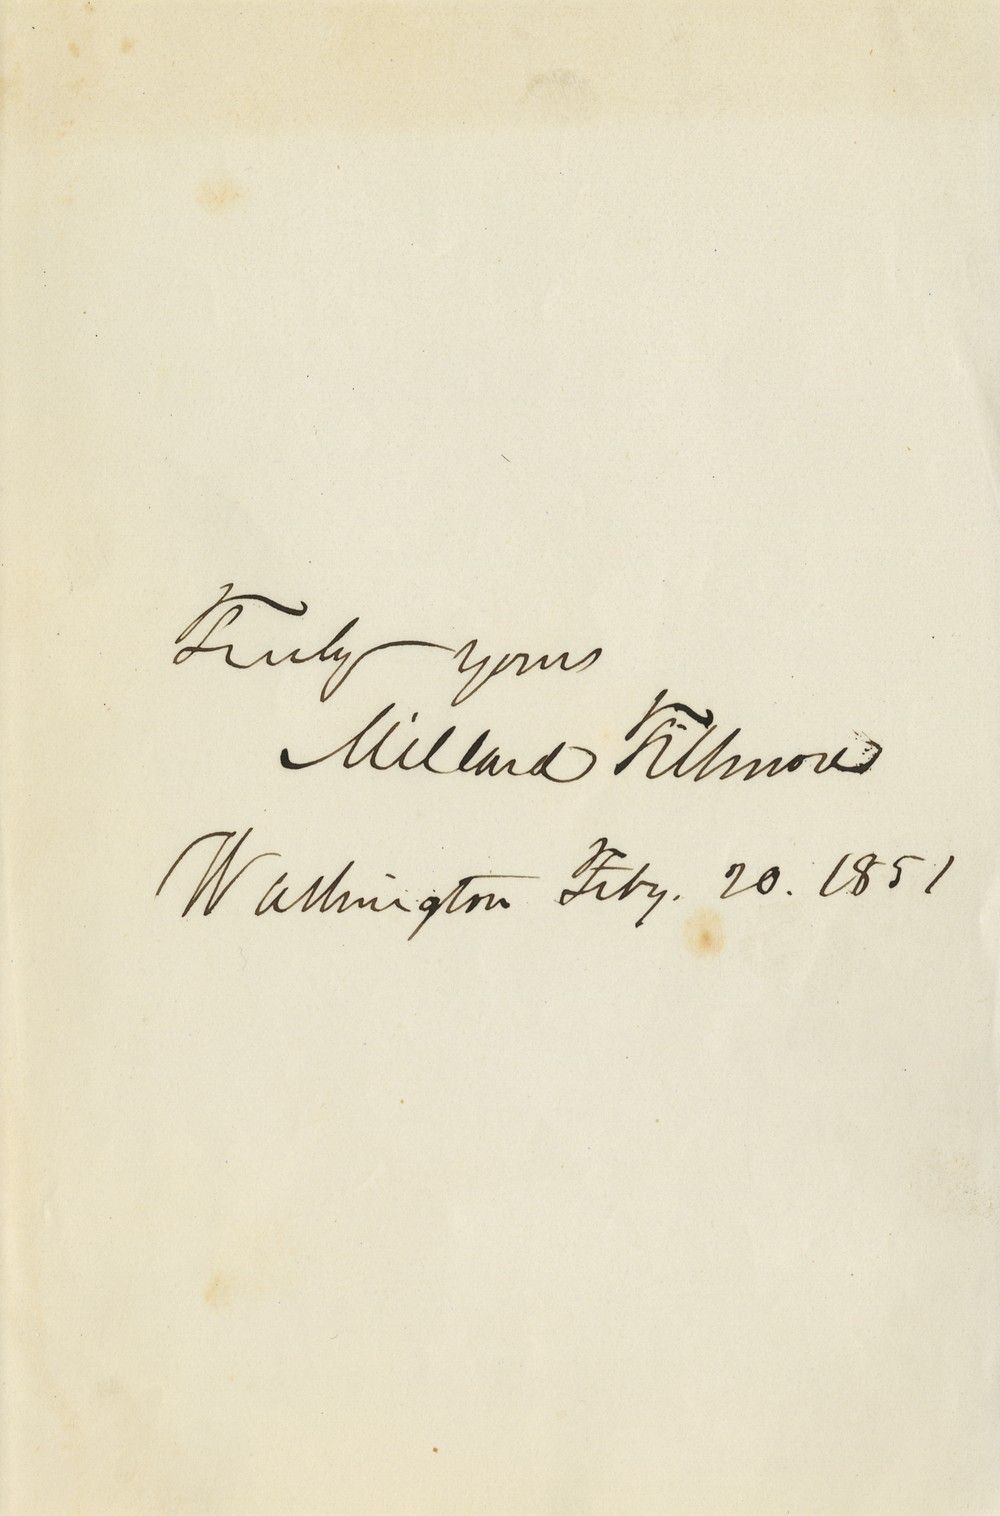 Truly yours
Millard Fillmore
Washington Feby. 20. 1851